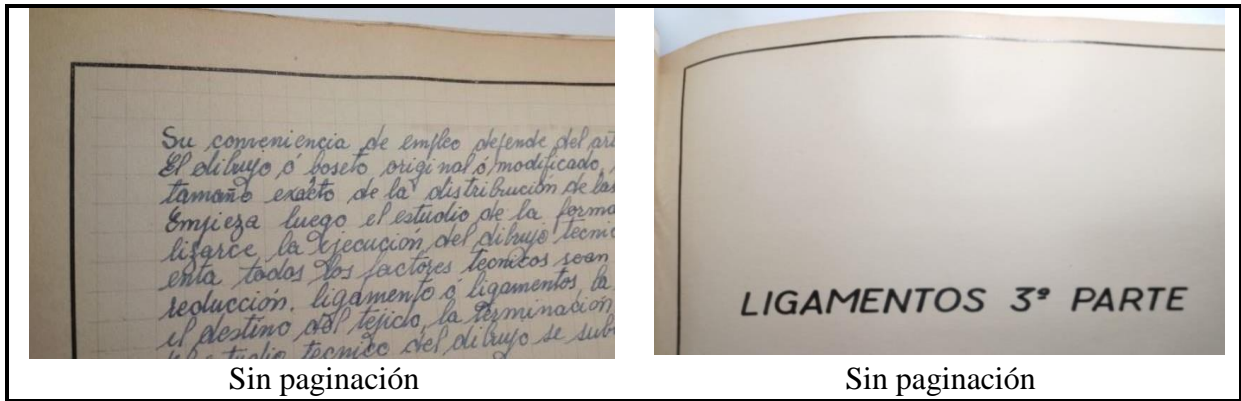 Su conveniencia de empleo depende del art
El dibujo ó boseto original ó modificado,
tamaño exacto de la distribución de las
Empieza luego el estudio de la forma
lizarce la ejecución del dibujo tecnic
enta todos los factores tecnicos sean
reducción, ligamento ó ligamentos, la
el destino del tejido, la terminación
estudio tecnico del dibujo se sub
LIGAMENTOS 3ª PARTE
Sin paginación
Sin paginación